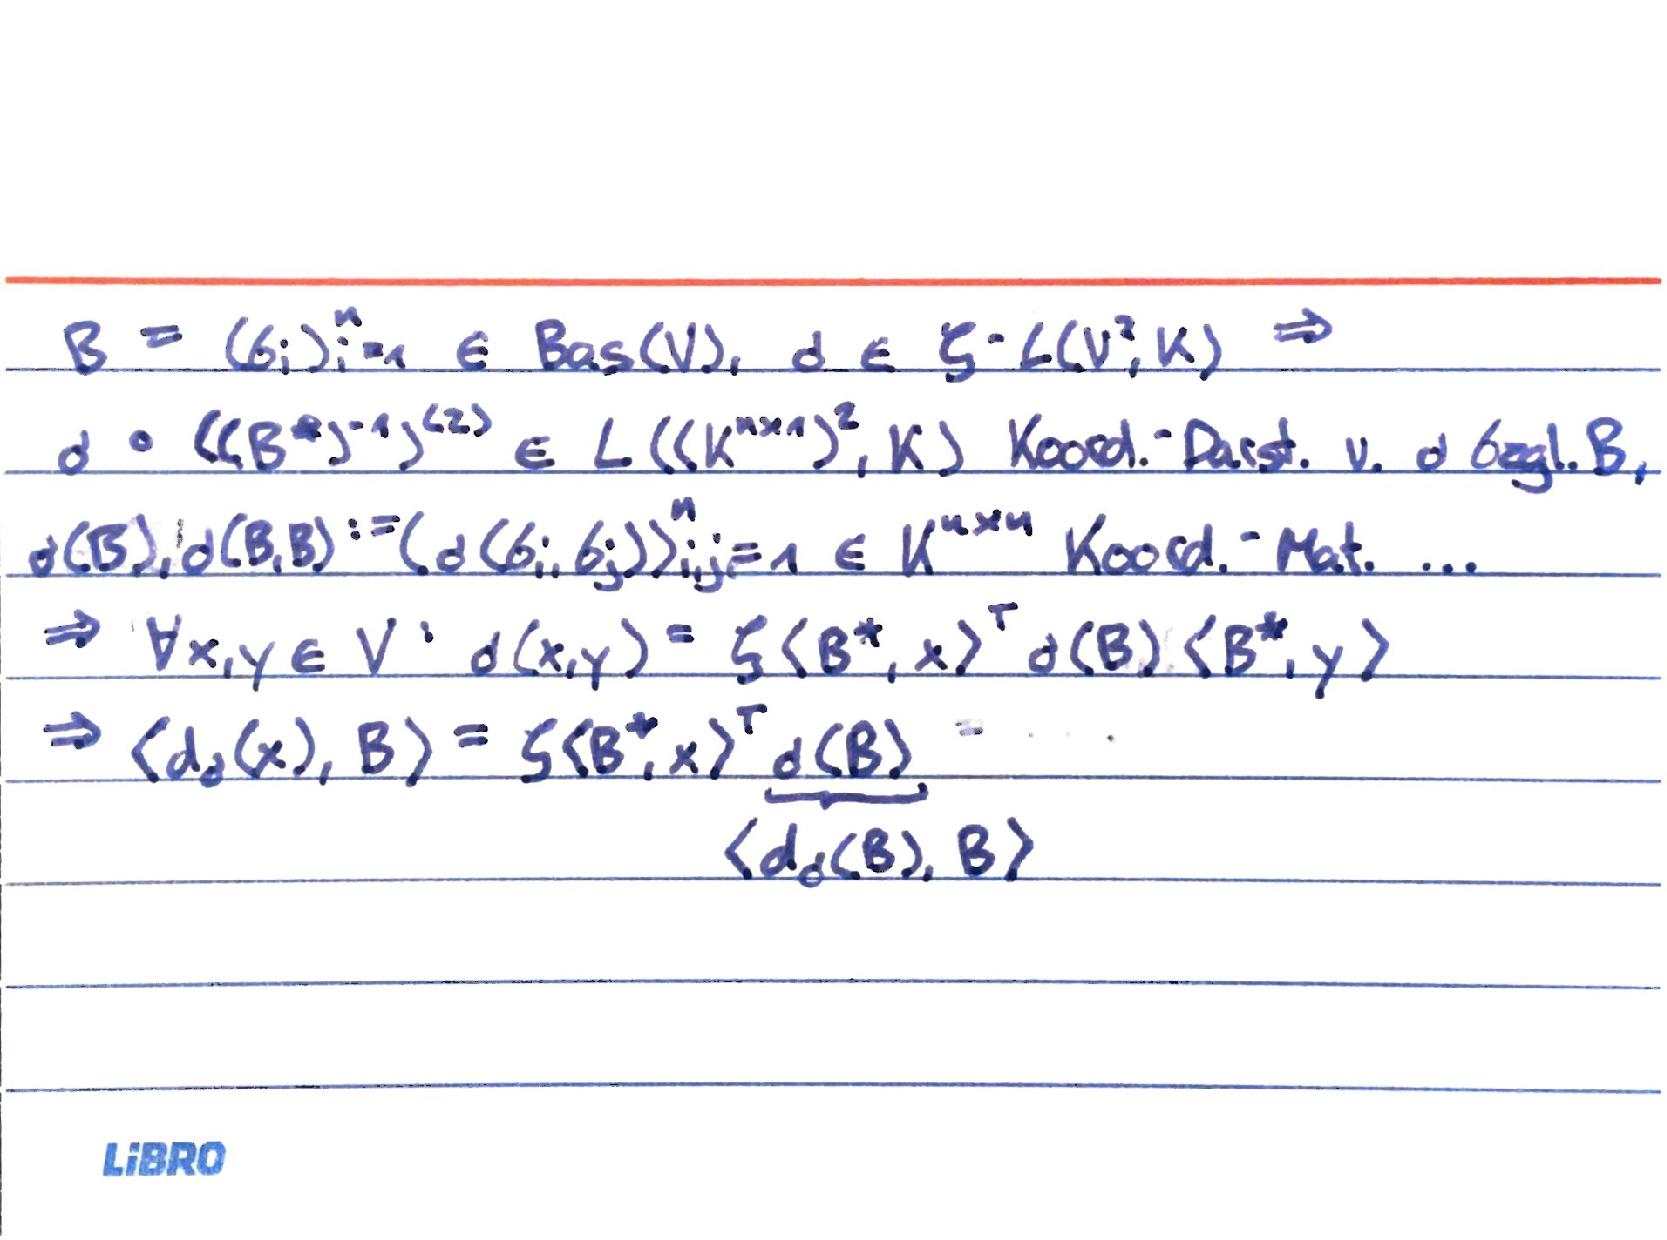 B = (b_i)_{i=1}^n ∈ Bas(V), σ ∈ ζ-L(V², K) ⇒
σ ∘ ((B*)^{-1})^{(2)} ∈ L((K^{n×1})², K) Koord.-Darst. v. σ bzgl. B,
σ(B), σ(B,B) := (σ(b_i, b_j))_{i,j=1}^n ∈ K^{n×n} Koord.-Mat. ...
⇒ ∀x,y ∈ V: σ(x,y) = ζ⟨B*, x⟩^T σ(B) ⟨B*, y⟩
⇒ ⟨d_σ(x), B⟩ = ζ⟨B*, x⟩^T σ(B)
⟨d_σ(B), B⟩
LiBRO